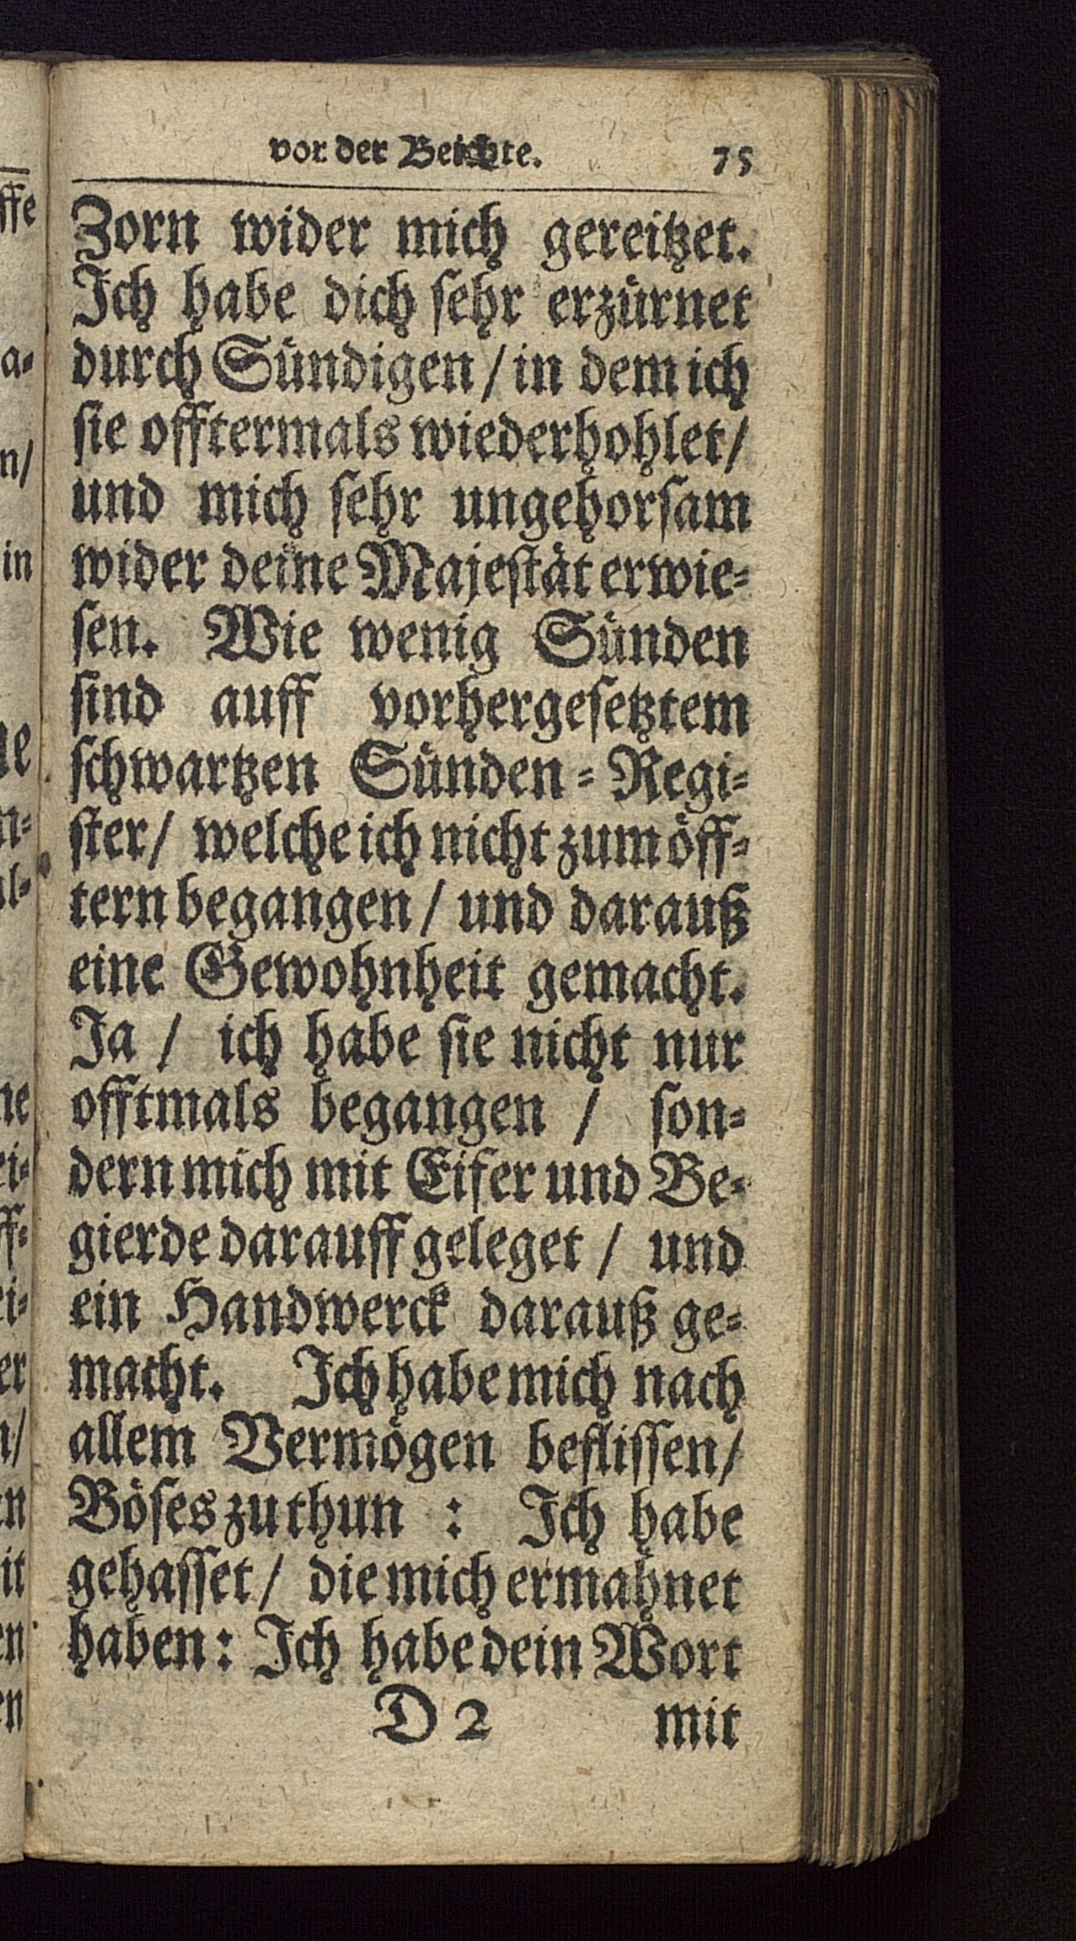 vor der Beichte. 75
Zorn wider mich gereitzet.
Ich habe dich sehr erzürnet
durch Sündigen / in dem ich
sie offtermals wiederhohlet /
und mich sehr ungehorsam
wider deine Majestät erwie-
sen. Wie wenig Sünden
sind auff vorhergesetztem
schwartzen Sünden-Regi-
ster / welche ich nicht zum öff-
tern begangen / und darauß
eine Gewohnheit gemacht.
Ja / ich habe sie nicht nur
offtmals begangen / son-
dern mich mit Eifer und Be-
gierde darauff geleget / und
ein Handwerck darauß ge-
macht. Ich habe mich nach
allem Vermögen beflissen /
Böses zu thun : Ich habe
gehasset / die mich ermahnet
haben : Ich habe dein Wort
D 2 mit